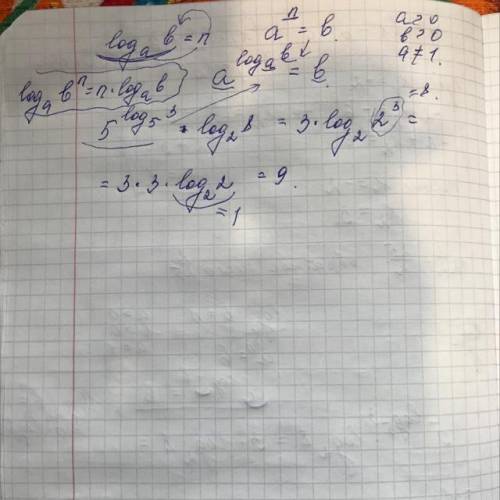 logₐ b = n   aⁿ = b.   a > 0
b > 0
a ≠ 1.
logₐ bⁿ = n · logₐ b   a^(logₐ b) = b.
5^(log₅ 3) · log₂ 8 = 3 · log₂ 2³ =   = 8.
= 3 · 3 · log₂ 2 = 9.
= 1